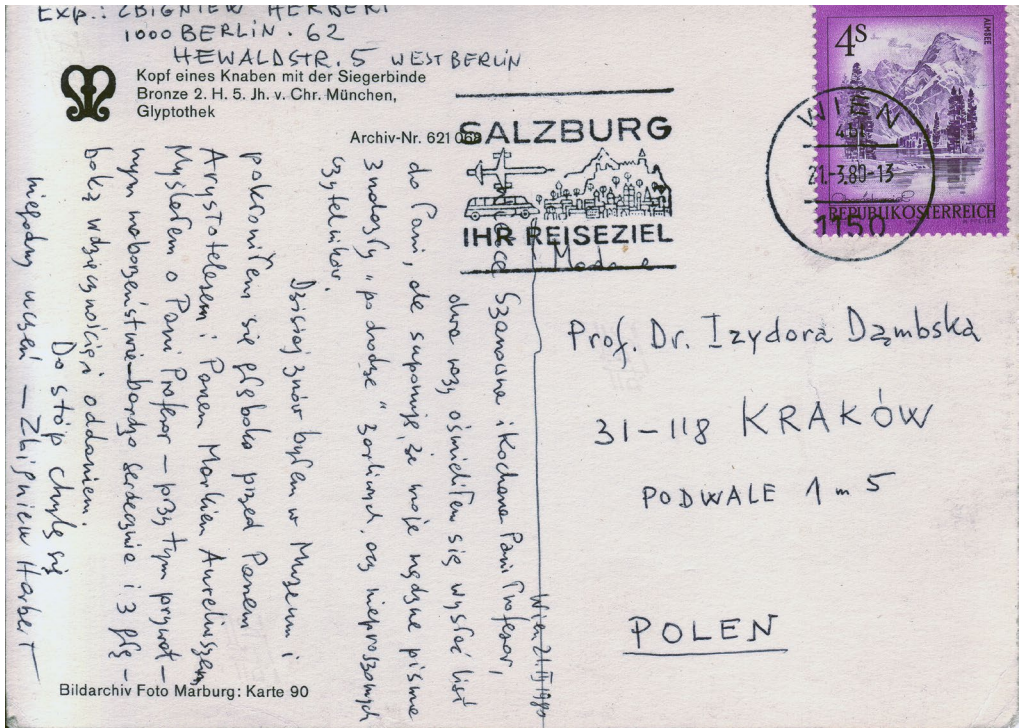 Exp.: ZBIGNIEW HERBERT
1000 BERLIN. 62
HEWALDSTR. 5 WEST BERLIN
Kopf eines Knaben mit der Siegerbinde
Bronze 2. H. 5. Jh. v. Chr. München,
Glyptothek
Archiv-Nr. 621 06
SALZBURG
IHR REISEZIEL
4S
ALMSEE
REPUBLIK ÖSTERREICH
WIEN
21.-3.80-13
1150
Wien 21 III 1980
Szanowna i Kochana Pani Profesor,
dwa razy ośmieliłem się wysłać list
do Pani, ale suponuję, że moje nędzne pismo
znalazły "po drodze" żarliwych, acz nieproszonych
czytelników.
Dzisiaj znów byłem w Muzeum i
pokłoniłem się głęboko przed Panem
Arystotelesem i Panem Markiem Aureliuszem
Myślałem o Pani Profesor – przy tym prywat-
nym nabożeństwie – bardzo serdecznie i z głę-
boką wdzięcznością i oddaniem.
Do stóp chylę się
niegodny uczeń – Zbigniew Herbert
Prof. Dr. Izydora Dąmbska
31-118 KRAKÓW
PODWALE 1 m 5
POLEN
Bildarchiv Foto Marburg: Karte 90